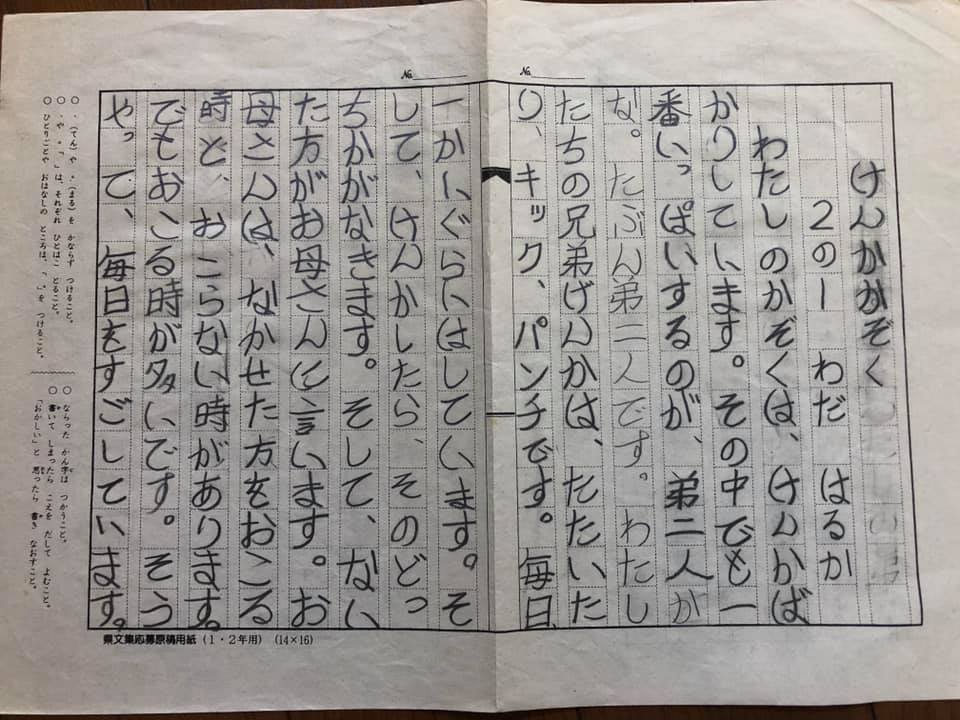 けんかかぞく
2の一 わだ はるか
わたしのかぞくは、けんかば
かりしています。その中でも一
番いっぱいするのが、弟二人か
な。たぶん弟二人です。わたし
たちの兄弟げんかは、たたいた
り、キック、パンチです。毎日
一かいぐらいはしています。そ
して、けんかしたら、そのどっ
ちかがなきます。そして、ない
た方がお母さんに言います。お
母さんは、なかせた方をおこる
時と、おこらない時があります。
でもおこる時が多いです。そう
やって、毎日をすごしています。
№
№
県文集応募原稿用紙(1・2年用) (14×16)
○ 、(てん)や 。(まる)を かならず つけること。
○ 、や 。「 」は、それぞれ ひとますに とること。
○ ひとりごとや おはなしの ところは、「 」を つけること。
○ ならった かん字は つかうこと。
○ 書いて しまったら こえを だして よむこと。
「おかしい」と 思ったら 書き なおすこと。